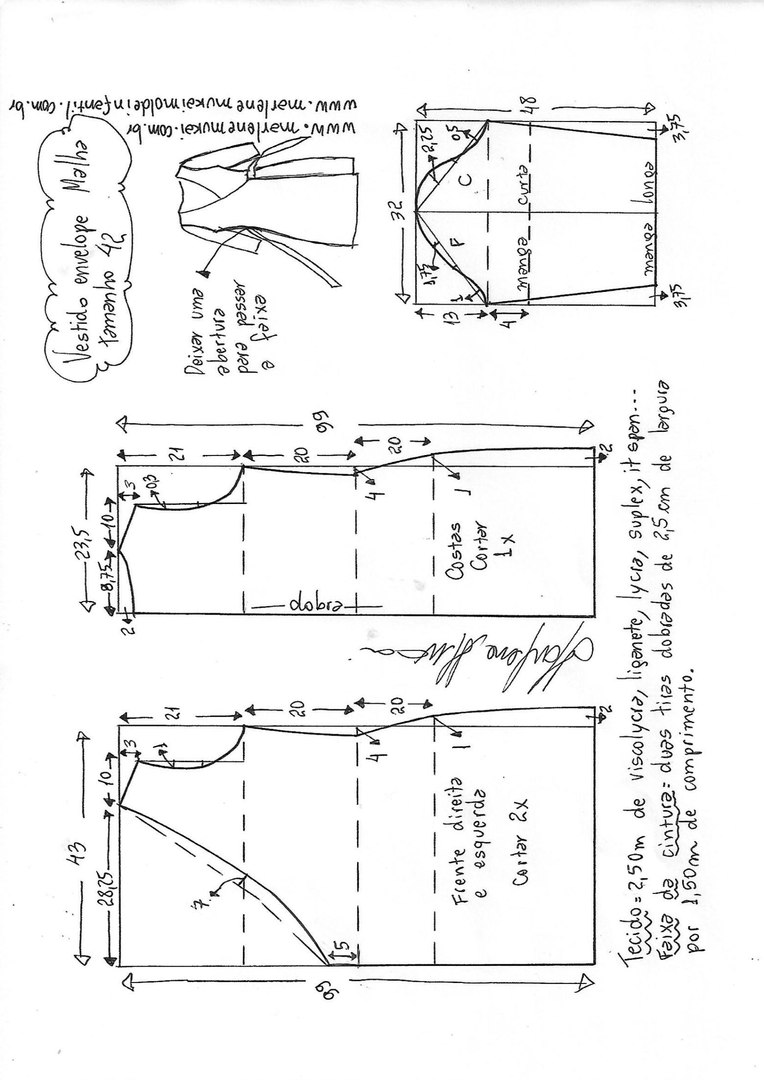 Vestido envelope Malha
tamanho 42
www.marlenemukai.com.br
www.marlenemukaimoldeinfantil.com.br
Deixar uma
abertura
para passar
a faixa
32
48
13
4
1,75
1
F
C
2,25
0,5
manga curta
manga longa
3,75
3,75
99
23,5
8,75
10
3
2
0,3
21
20
20
4
1
2
dobra
Costas
Cortar
1x
Marlene Mukai
43
28,25
10
3
1
21
20
20
4
1
2
7
5
99
Frente direita
e esquerda
Cortar 2x
Tecido = 2,50m de viscolycra, liganete, lycra, suplex, it span...
Faixa da cintura = duas tiras dobradas de 2,5 cm de largura
por 1,50m de comprimento.